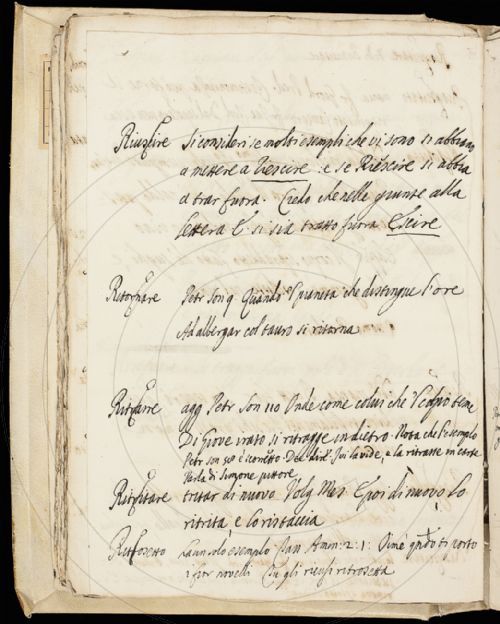 Riuscire Si consideri se molti esempli che vi sono si abbiano
a mettere a Uescire: e se Riescire si abbia
a trar fuora. Credo che nelle giunte alla
lettera E. si sia tratto fuora Escire
Ritornare Petr son 9. Quando 'l pianeta che distingue l'ore
Ad albergar col tauro si ritorna
Ritrarre agg. Petr son 110 Onde come colui che 'l colpo teme
Di Giove irato si ritragge indietro. Nota che l'esemplo
Petr son è scorretto. Dee dire. Ivi la vide, e la ritrasse in carte
Parla di Simone pittore
Ritritare tritar di nuovo Volg Mes. E poi di nuovo lo
ritrita, e lo ristaccia
Ritrosetto esemplo Amm: 2: 1: ti porto
i fior novelli ritrosetta